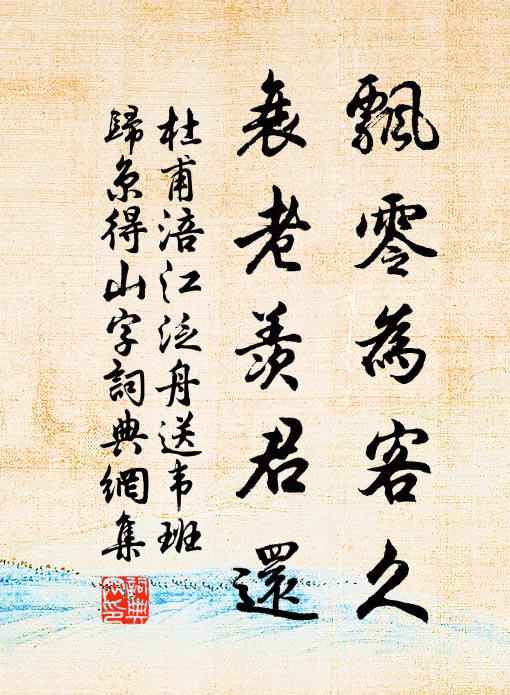 飄零為客久
衰老羨君還
杜甫涪江泛舟送韦班
歸京得山字詞典網集